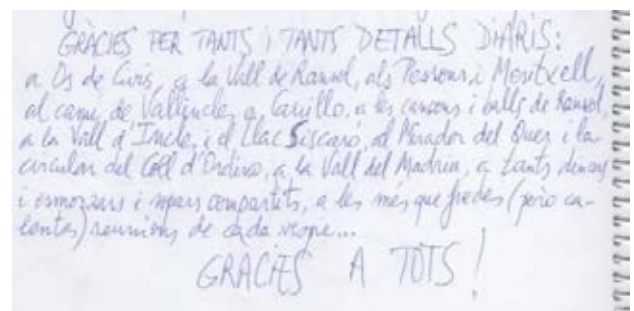 GRÀCIES PER TANTS I TANTS DETALLS DIARIS:
a Os de Civis, a la Vall de Ransol, als Pessons i Meritxell,
al camí de Vallincle, a Canillo, a les cançons i balls de Ransol,
a la Vall d'Incle, i el Llac Siscaró, al Mirador del Quer i la
circular del Coll d'Ordino, a la Vall del Madriu, a tants dinars
i esmorzars i sopars compartits, a les més que fredes (però ca-
lentes) reunions de cada vespre...
GRÀCIES A TOTS!